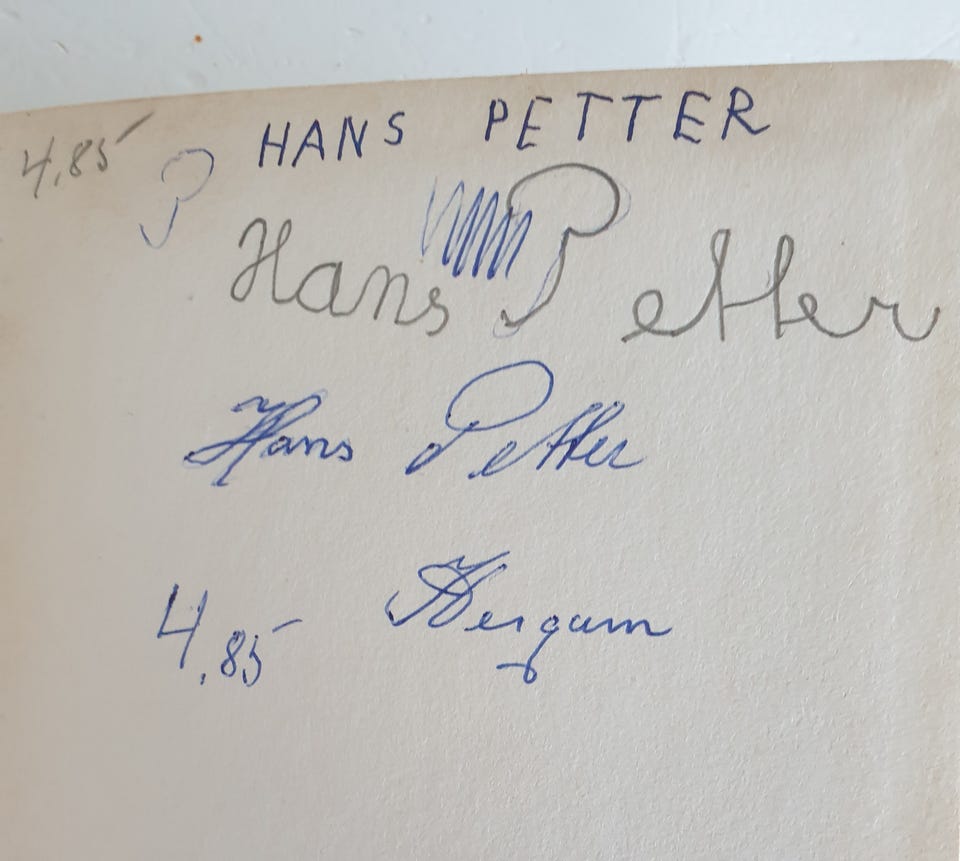 4,85 HANS PETTER
P
Hans Petter
Hans Petter
4,85